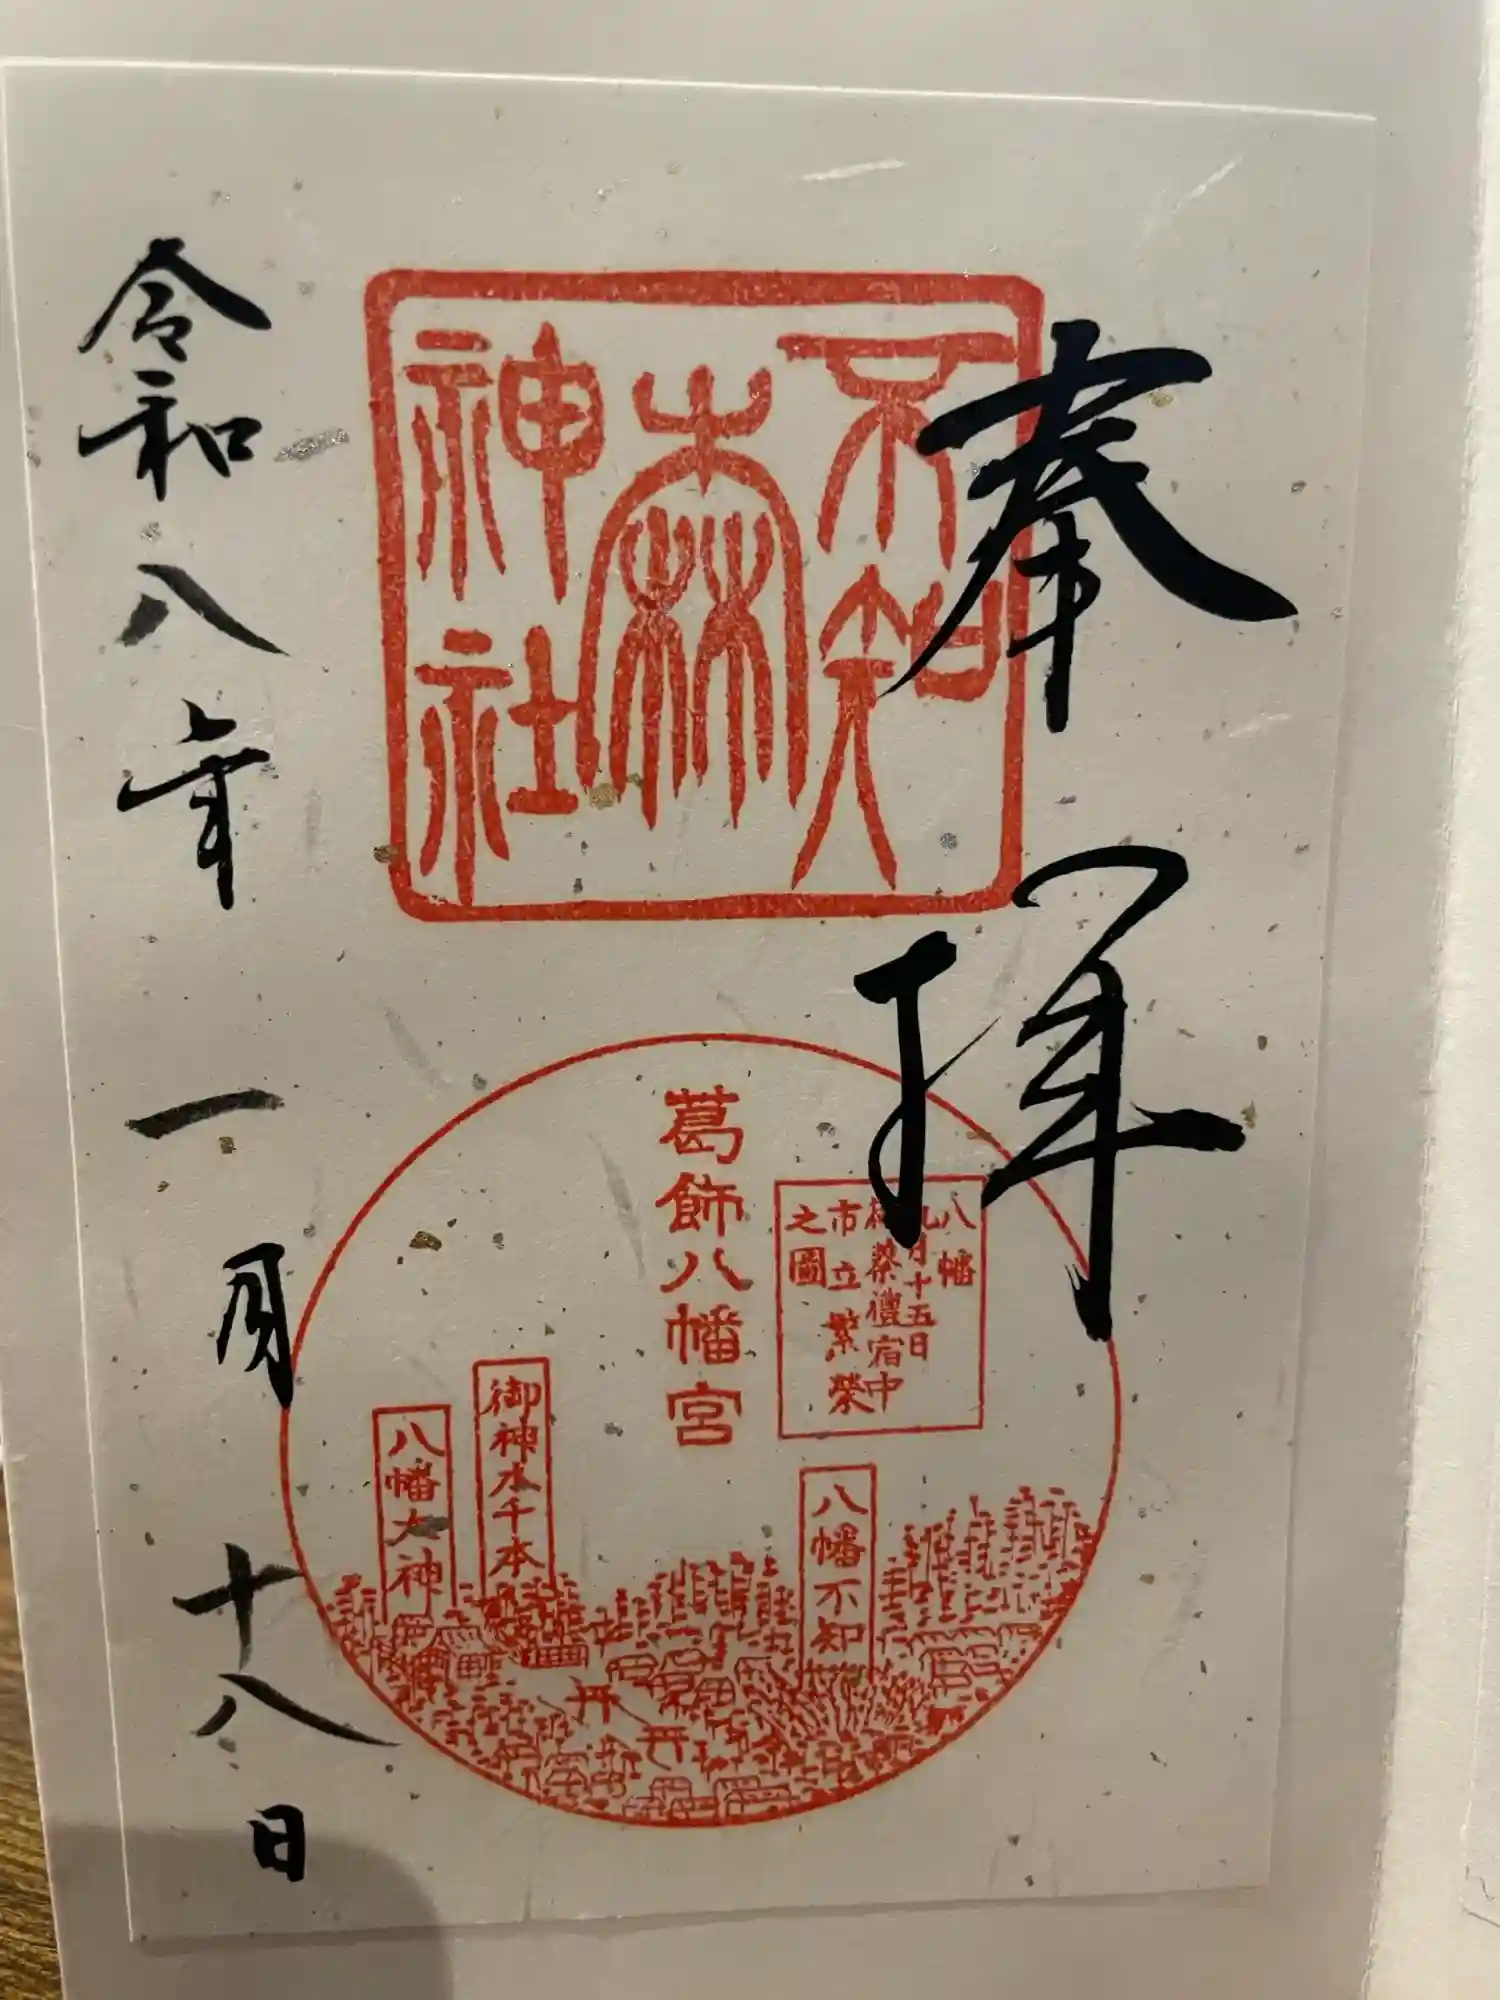 奉拝
不知森神社
葛飾八幡宮
八幡
九月十五日
祭禮宿中
市立繁榮
之圖
八幡不知
御神木千本
八幡大神
令和八年一月十八日